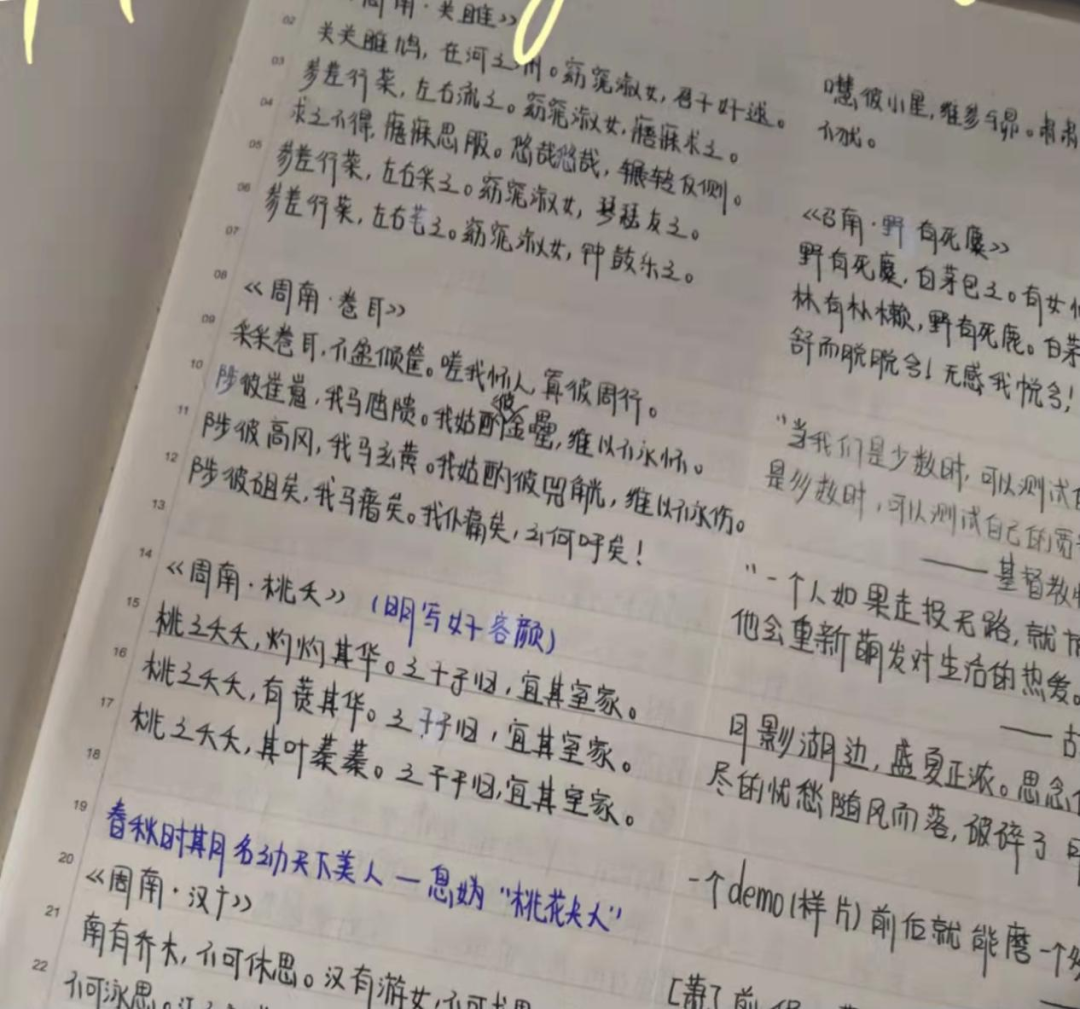 《周南·关雎》
关关雎鸠，在河之洲。窈窕淑女，君子好逑。
参差荇菜，左右流之。窈窕淑女，寤寐求之。
求之不得，寤寐思服。悠哉悠哉，辗转反侧。
参差荇菜，左右采之。窈窕淑女，琴瑟友之。
参差荇菜，左右芼之。窈窕淑女，钟鼓乐之。
《周南·卷耳》
采采卷耳，不盈倾筐。嗟我怀人，寘彼周行。
陟彼崔嵬，我马虺隤。我姑酌彼金罍，维以不永怀。
陟彼高冈，我马玄黄。我姑酌彼兕觥，维以不永伤。
陟彼砠矣，我马瘏矣。我仆痡矣，云何吁矣！
《周南·桃夭》（明写好容颜）
桃之夭夭，灼灼其华。之子于归，宜其室家。
桃之夭夭，有蕡其华。之子于归，宜其室家。
桃之夭夭，其叶蓁蓁。之子于归，宜其室家。
春秋时期名动天下美人—息妫"桃花夫人"
《周南·汉广》
南有乔木，不可休思。汉有游女，不可求思
不可泳思。江
嘒彼小星，维参与昴。肃肃
不犹。
《召南·野有死麇》
野有死麇，白茅包之。有女
林有朴樕，野有死鹿。白茅
舒而脱脱兮！无感我帨兮！
"当我们是少数时，可以测试
是多数时，可以测试自己的宽
——基督教
"一个人如果走投无路，就
他会重新萌发对生活的热爱。
——古
月影湖边，盛夏正浓。思念
尽的忧愁随风而落，破碎了
一个demo（样片）前后就能磨一个